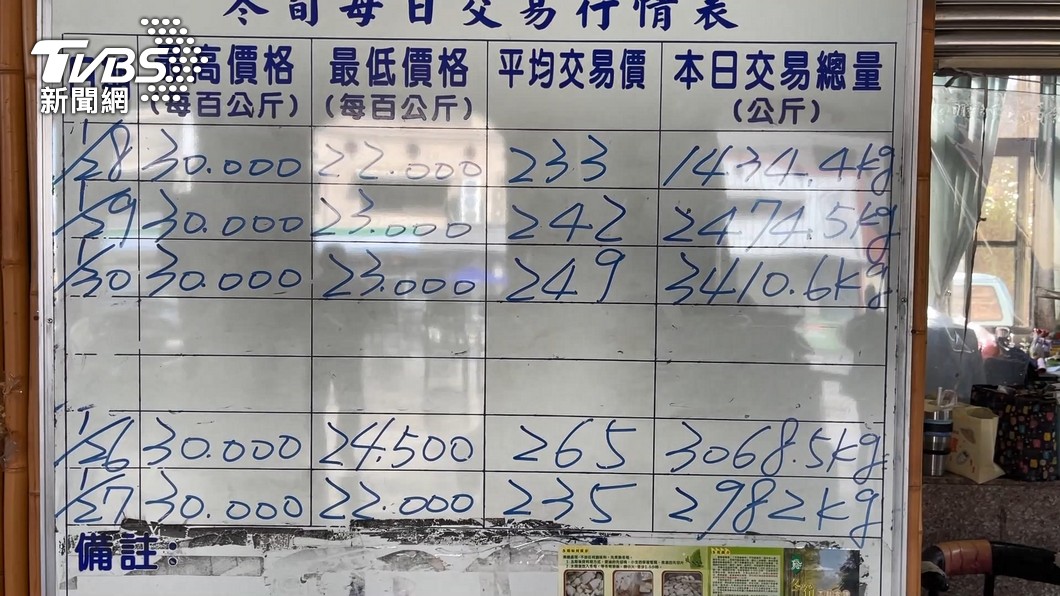 冬旬每日交易行情表
TVBS
新聞網
高價格
(每百公斤)
最低價格
(每百公斤)
平均交易價
本日交易總量
(公斤)
1/28 30.000 22.000 233 1434.4kg
1/29 30.000 23.000 242 2474.5kg
1/30 30.000 23.000 249 3410.6kg
1/26 30.000 24.500 265 3068.5kg
1/27 30.000 22.000 235 2982kg
備註: